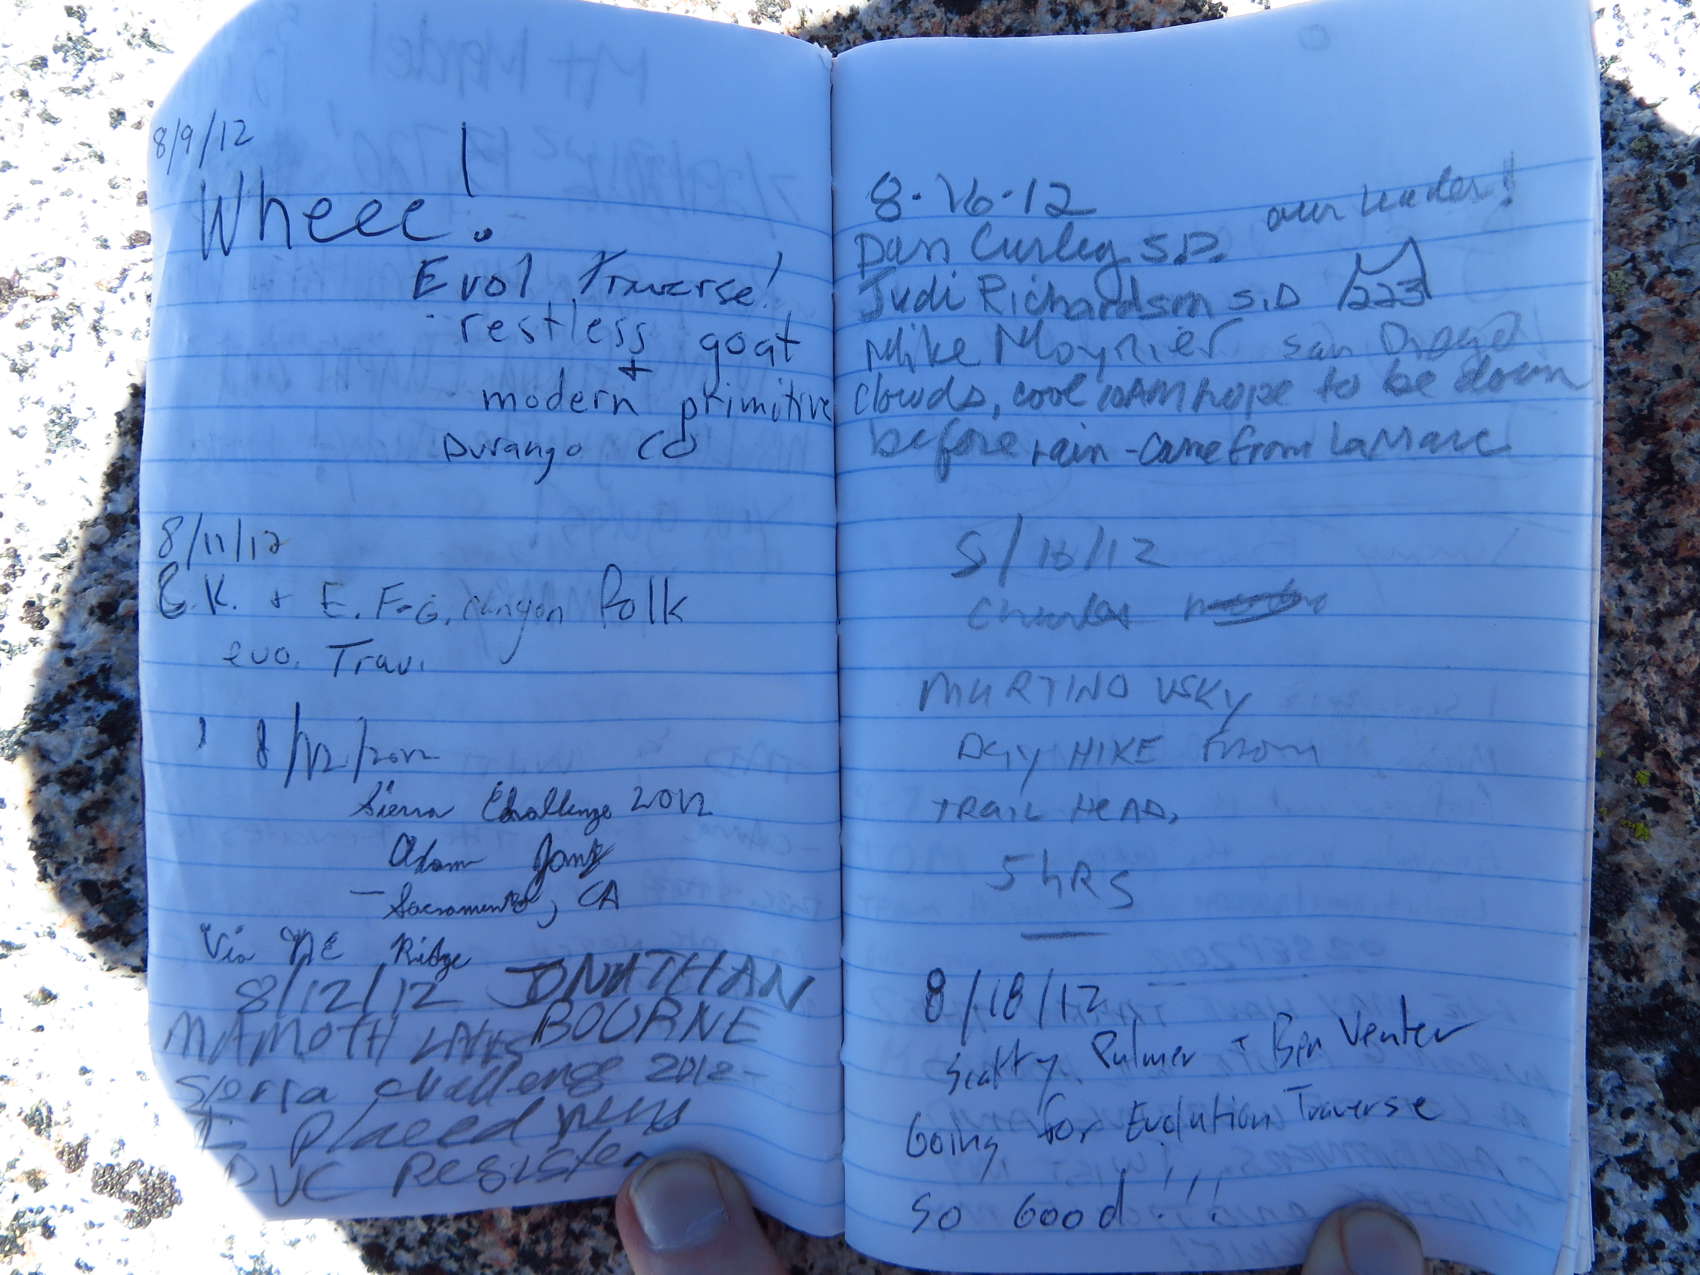 8/9/12
Wheee!
Evol. Traverse!
restless goat
+
modern primitive
Durango CO
8/11/12
E.K. + E. F-G. canyon folk
evo. Trav.
8/12/2012
Sierra Challenge 2012
Adam
- Sacramento, CA
Via NE Ridge
8/12/12 JONATHAN
MAMOTH LAKES BOURNE
Sierra challenge 2012-
I placed new
PVC Register
8-16-12
our leader!
Dan Curley S.D.
Judi Richardson S.D 223
Mike Moynier San Diego
Clouds, cool 10AM hope to be down
before rain - came from LaMarc
8/16/12
Charles
MARTINOVSKY
DAY HIKE FROM
TRAIL HEAD,
5 hRS
8/18/12
Scotty Pulmer + Ben Venter
Going for Evolution Traverse
So Good!!!